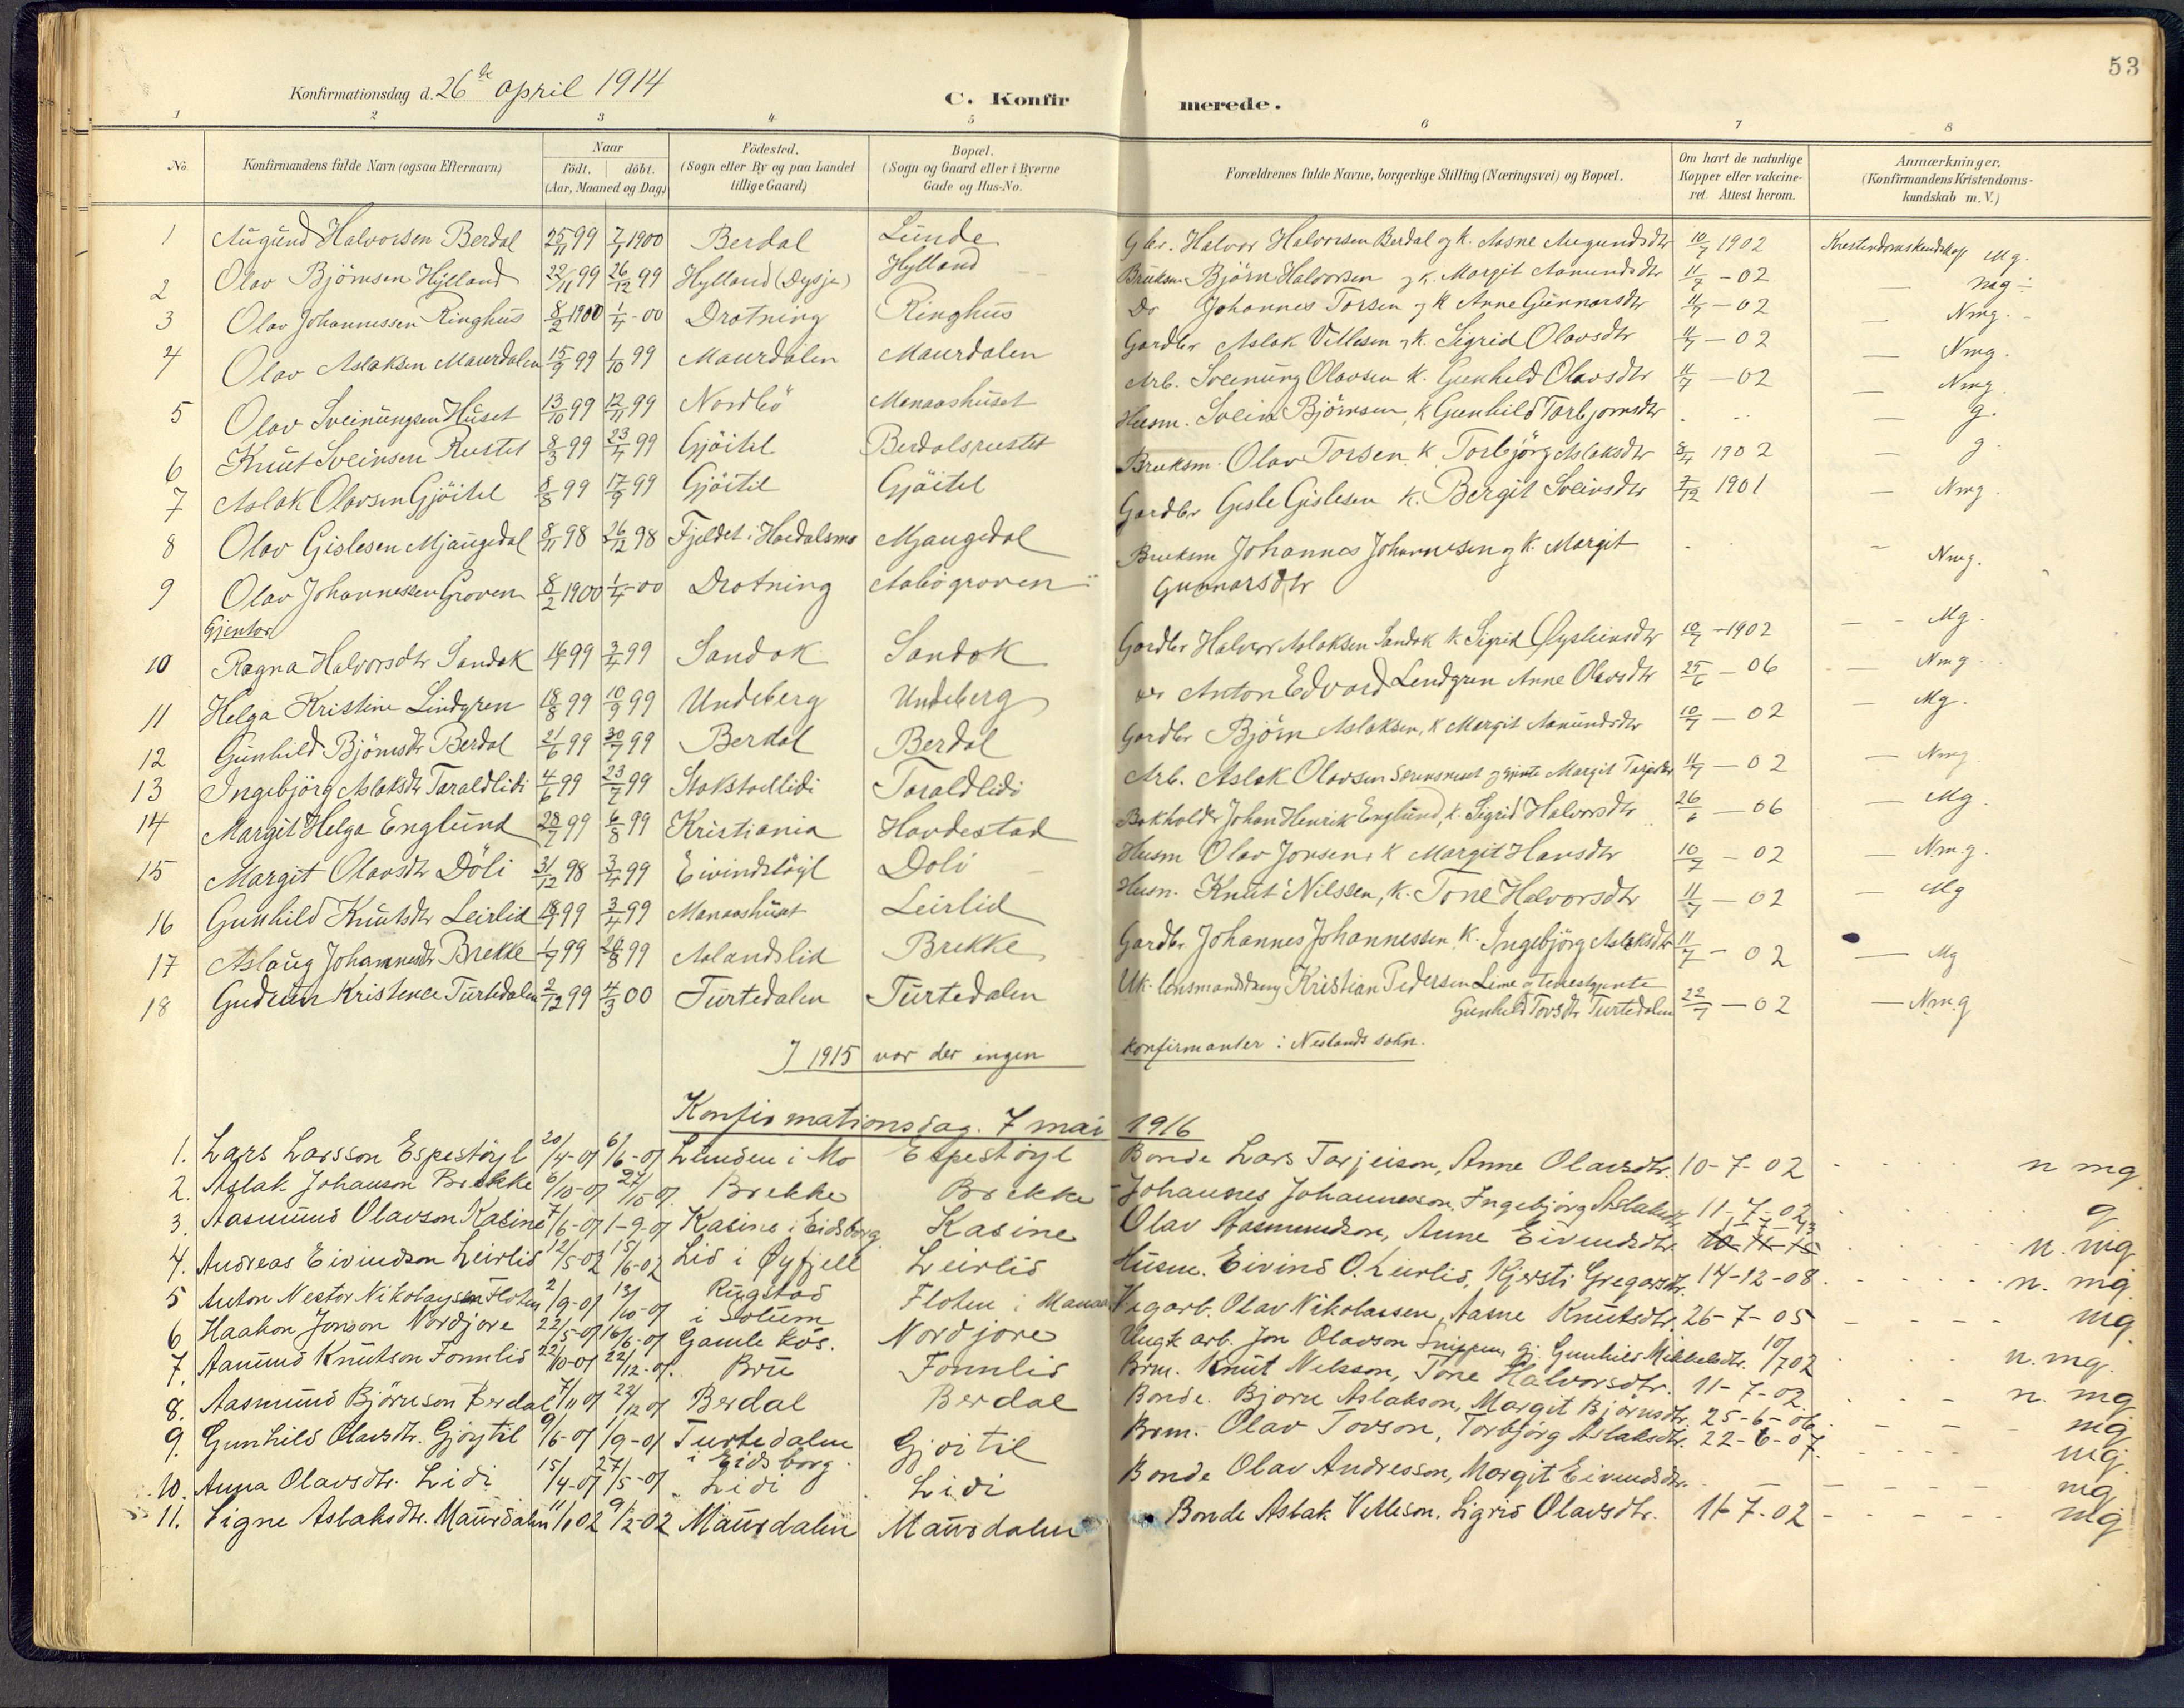 53
Konfirmationsdag d. 26de april 1914
C. Konfirmerede.
1 2 3 4 5 6 7 8
No. Konfirmandens fulde Navn (ogsaa Efternavn) Naar født. døbt. (Aar, Maaned og Dag) Födested. (Sogn eller By og paa Landet tillige Gaard) Bopæl. (Sogn og Gaard eller i Byerne Gade og Hus-No. Forældrenes fulde Navne, borgerlige Stilling (Næringsvei) og Bopæl. Om havt de naturlige Kopper eller vakcineret. Attest herom. Anmærkninger. (Konfirmandens Kristendomskundskab m. V.)
1 Augund Halvorsen Berdal 25/11 99 7/1 1900 Berdal Lunde Gbr. Halvor Halvorsen Berdal og k. Aasne Augundsdtr 10/7 1902 Kristendomskundskap Mg.
2 Olav Björnsen Hylland 22/11 99 26/12 99 Hylland (Dysja) Hylland Bruksm Björn Halvorsen og k. Margit Aamundsdtr 11/7 - 02 — mg ÷
3 Olav Johannessen Ringhus 8/2 1900 1/4 - 00 Drotning Ringhus Do Johannes Torsen og k Anne Gunnarsdtr 11/7 - 02 — Nmg.
4 Olav Aslaksen Maurdalen 15/9 99 1/10 99 Maurdalen Maurdalen Gardbr Aslak Vetlesen og k. Sigrid Olavsdtr 11/7 - 02 — Nmg.
5 Olav Sveinungsen Huset 13/10 99 12/11 99 Nordbö Manaoshuset Arb. Sveinung Olavsen k. Gunhild Olavsdtr 11/7 - 02 — Nmg
6 Knut Sveinsen Rustet 8/3 99 23/4 99 Gjöitil Berdalsrustet Husm. Svein Björnsen, k Gunhild Torbjornsdtr — g.
7 Aslak Olavsen Gjöitil 8/8 99 17/9 99 Gjöitil Gjöitil Bruksm. Olav Torsen k. Torbjörg Aslaksdtr 8/7 1902 — g.
8 Olav Gislesen Mjaugedal 8/11 98 26/12 98 Fjeldet i Høidalsmo Mjaugedal Gardbr Gisle Gislesen k. Bergit Sveinsdtr 7/12 1901 — Nmg.
9 Olav Johannessen Groven 8/2 1900 1/4 - 00 Drotning Aabögroven Bruksm Johannes Johannesen og k. Margit
Gunnarsdtr — Nmg.
Gjentor
10 Ragna Halvorsdtr Sandok 99 3/4 99 Sandok Sandok Gardbr Halvor Aslaksen Sandok k Sigrid Øysteinsdtr 10/7 - 1902 — Mg.
11 Helga Kristine Lindgren 18/8 99 10/9 99 Undeberg Undeberg Anton Edvard Lendgren Anne Olavsdtr 25/6 - 06 — Nmg.
12 Gunhild Björnsdtr Berdal 21/6 99 30/7 99 Berdal Berdal Gardbr Björn Aslaksen, k Margit Aamundsdtr 10/7 - 02 — Mg.
13 Ingebjörg Aslaksdtr Taraldlidi 4/6 99 23/7 99 Stokstodlidi Taraldlidi Arb. Aslak Olavsen og gjente Margit Tarjeisdtr 11/7 - 02 — Nmg
14 Margit Helga Englund 28/7 99 6/8 99 Kristiania Hovdestad Bokholdr Johan Henrik Englund, k. Sigrid Halvorsdtr 26/6 - 06 — Mg
15 Margit Olavsdtr Döli 31/12 98 3/4 99 Eivindstöyl Doli Husm Olav Jonsen, k Margit Hansdtr 10/7 - 02 — Nm.g.
16 Gunhild Knutsdtr Leirlid 99 3/4 99 Manaoshuset Leirlid Husm. Knut Nilssen, k. Tone Halvorsdtr 11/7 - 02 — Mg
17 Aslaug Johannesdtr Brekke 1/7 99 20/8 99 Aslandslid Brekke Gardbr. Johannes Johannessen k. Ingebjörg Aslaksdtr 11/7 - 02 — Mg
18 Gudrun Kristence Turtedalen 2/12 99 4/3 00 Turtedalen Turtedalen Uk. lensmandsdreng Kristian Pedersen Lime og tenestgjente
Gunhild Tovsdtr Turtedalen 22/7 - 02 — Nmg
I 1915 var der ingen konfirmanter i Neslands sokn.
Konfirmationsdag. 7 mai 1916
1. Lars Larsson Espestöyl 20/4-01 6/6-01 Lunden i Mo Espestöyl Bonde Lars Tarjeison, Anne Olavsdtr. 10-7-02 n mg
2. Aslak Johanson Brekke 6/10-01 27/10-01. Brekke Brekke Johannes Johannesson, Ingebjörg Aslaksdtr 11-7-02 g
3. Aasmund Olavson Kasine 7/6-01 1-9-01 Kasine i Eidsborg Kasine Olav Aasmundson, Anne Eivindsdtr. n. mg
4. Andreas Eivindson Leirlid 12/5-02 15/6-02 Lid i Øyfjell Leirlid Husm. Eivind O. Leirlid, Kjersti Gregarsdtr. 14-12-08. n. mg.
5 Anton Nestor Nikolaysen Floten 2/9-01 13/10-01 Rugstad
i Solum Floten i Manaa Vegarb. Olav Nikolaisen, Aasne Knutsdtr. 26-7-05 mg.
6 Haakon Jonson Nordjore 22/5-01 16/6-01 Gamle kös. Nordjore Ungk arb. Jon Olavson Snippen, gj. Gunhild Mikkelsdtr. 10/7 02 n. mg.
7. Aanund Knutson Fonnlid 22/10-01 22/12-01. Bru Fonnlid Brm. Knut Nelsson, Tone Halvorsdtr. 11-7-02. n. mg
8. Aasmund Björnson Berdal 7/11 01 22/12 01 Berdal Berdal Bonde. Bjorn Aslakson, Margit Björnsdtr. 25-6-06. mg
9. Gunhild Olavsdtr. Gjöytil 9/6-01 1/9-01 Turtedalen
i Eidsborg. Gjöitil Brm. Olav Tovson, Torbjörg Aslaksdtr. 22-6-07. mg.
10. Anna Olavsdtr. Lidi 15/4-01 27/5-01 Lidi Lidi Bonde Olav Andresson, Margit Eivindsdtr. mg
11. Signe Aslaksdtr. Maurdalen 11/1 02 9/2-02 Maurdalen Maurdalen Bonde Aslak Vetleson, Sigrid Olavsdtr. 11-7-02 mg